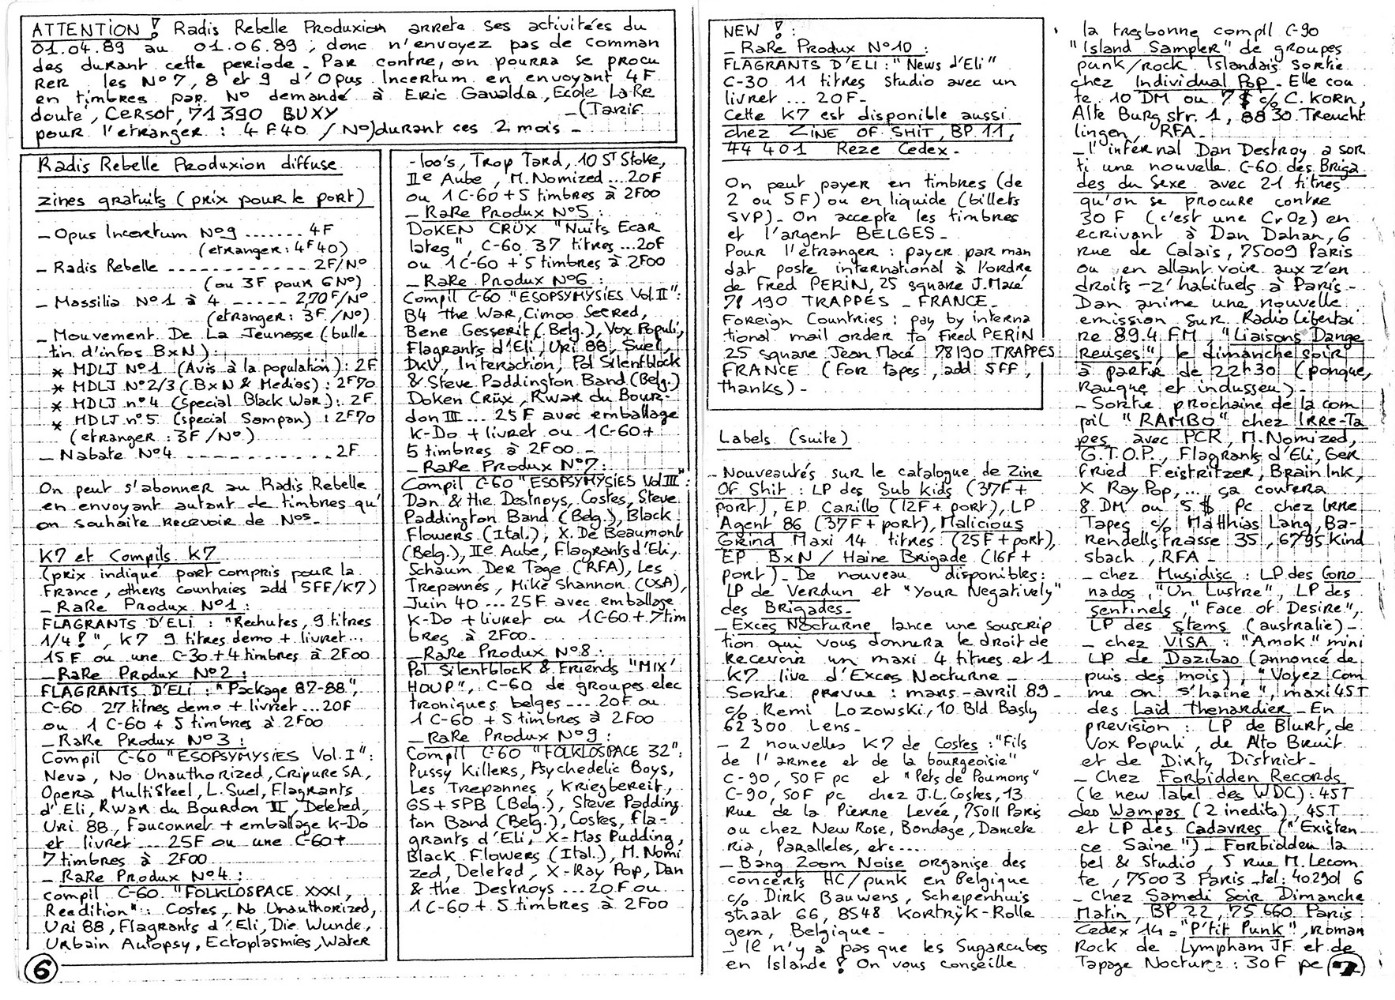 ATTENTION ! Radis Rebelle Produxion arrete ses activitées du
01.04.89 au 01.06.89 ; donc n'envoyez pas de comman
des durant cette periode. Par contre, on pourra se procu
rer les N°7, 8 et 9 d'Opus Incertum en envoyant 4F
en timbres par N° demandé à Eric Gavalda, Ecole La Re
doute, Cersot, 71390 BUXY _(Tarif
pour l'etranger : 4F40 / N°) durant ces 2 mois _
Radis Rebelle Produxion diffuse
zines gratuits (prix pour le port)
_ Opus Incertum N°9 ....... 4F
(etranger : 4F40)
_ Radis Rebelle ............ 2F/N°
(ou 3F pour 6N°)
_ Massilia N°1 à 4 ...... 2F70/N°
(etranger : 3F/N°)
_ Mouvement De La Jeunesse (bulle
tin d'infos BxN) :
* MDLJ N°1 (Avis à la population) : 2F
* MDLJ N°2/3 (BxN & Medias) : 2F70
* MDLJ n°4 (Special Black War) : 2F
* MDLJ n°5 (special Sampan) : 2F70
(etranger : 3F/N°)
_ Nabate N°4 ............. 2F
On peut s'abonner au Radis Rebelle
en envoyant autant de timbres qu'
on souhaite recevoir de Nos_
K7 et Compils K7
(prix indiqué port compris pour la
France, others countries add 5FF/K7)
_ RaRe Produx N°1 :
FLAGRANTS D'ELI : "Rechutes, 9 titres
1/4 !", K7 9 titres demo + livret...
15F ou une C-30 + 4 timbres à 2F00
_ RaRe Produx N°2 :
FLAGRANTS D'ELI : "Package 87-88",
C-60 27 titres demo + livret... 20F
ou 1 C-60 + 5 timbres à 2F00
_ RaRe Produx N°3 :
Compil C-60 "ESOPSYMYSIES Vol. I" :
Neva, No Unauthorized, Cripure SA,
Opera Multisteel, L. Suel, Flagrants
d'Eli, Rwar du Bourdon II, Deleted,
Uri 88, Fauconnet + emballage K-Do
et livret... 25F ou une C-60 +
7 timbres à 2F00
_ RaRe Produx N°4 :
compil C-60 "FOLKLOSPACE XXXI,
Reedition" : Costes, No Unauthorized,
Uri 88, Flagrants d'Eli, Die Wunde,
Urbain Autopsy, Ectoplasmies, Water
6
-loo's, Trop Tard, 10 ST Stoke,
IIe Aube, M. Nomized... 20F
ou 1 C-60 + 5 timbres à 2F00
_ RaRe Produx N°5 :
DOKEN CRÜX "Nuits Ecar
lates", C-60 37 titres... 20F
ou 1 C-60 + 5 timbres à 2F00
_ RaRe Produx N°6 :
Compil C-60 "ESOPSYMYSIES Vol. II" :
B4 the War, Cimoc Secred,
Bene Gesserit (Belg.), Vox Populi,
Flagrants d'Eli, Uri 88, Suel,
DKV, Interaction, Pol Silentblock
& Steve Paddington Band (Belg.)
Doken Crüx, Rwar du Bour-
don III... 25F avec emballage
K-Do + livret ou 1 C-60 +
5 timbres à 2F00_
_ RaRe Produx N°7 :
Compil C-60 "ESOPSYMYSIES Vol. III" :
Dan & the Destroys, Costes, Steve
Paddington Band (Belg.), Black
Flowers (Ital.), X. De Beaumont
(Belg.), IIe Aube, Flagrants d'Eli,
Schaum Der Tage (RFA), Les
Trepannés, Mike Shannon (USA),
Juin 40... 25F avec emballage
K-Do + livret ou 1C-60 + 7 tim
bres à 2F00_
_ RaRe Produx N°8 :
Pol Silentblock & Friends "MIX'
HOUP", C-60 de groupes elec
troniques belges.... 20F ou
1 C-60 + 5 timbres à 2F00
_ RaRe Produx N°9 :
Compil C-60 "FOLKLOSPACE 32" :
Pussy Killers, Psychedelic Boys,
Les Trepannes, Kriegbereit,
GS+SPB (Belg.), Steve Padding
ton Band (Belg.), Costes, Fla-
grants d'Eli, X-Mas Pudding,
Black Flowers (Ital.), M. Nomi
zed, Deleted, X-Ray Pop, Dan
& the Destroys... 20F ou
1 C-60 + 5 timbres à 2F00
NEW ! :
_ RaRe Produx N°10 :
FLAGRANTS D'ELI : "News d'Eli"
C-30 11 titres studio avec un
livret... 20F_
Cette K7 est disponible aussi
chez ZINE OF SHIT, BP 11,
44 401 Reze Cedex_
On peut payer en timbres (de
2 ou 5F) ou en liquide (billets
SVP)_ On accepte les timbres
et l'argent BELGES_
Pour l'étranger : payer par man
dat poste international à l'ordre
de Fred PERIN, 25 square J. Macé
78 190 TRAPPES _ FRANCE_
Foreign Countries : pay by interna
tional mail order to Fred PERIN
25 square Jean Macé 78190 TRAPPES
FRANCE (for tapes, add 5FF,
thanks)_
Labels (suite)
_ Nouveautés sur le catalogue de Zine
Of Shit : LP des Sub Kids (37F+
port), EP Carillo (12F+ port), LP
Agent 86 (37F+port), Malicious
Grind Maxi 14 titres (25F+port),
EP BxN / Haine Brigade (16F+
port)_ De nouveau disponibles :
LP de Verdun et "Your Negatively"
des Brigades_
_ Exces Nocturne lance une souscrip
tion qui vous donnera le droit de
recevoir un maxi 4 titres et 1
K7 live d'Exces Nocturne_
Sortie prevue : mars-avril 89_
c/o Remi Lozowski, 10 Bld Basly
62 300 Lens_
_ 2 nouvelles K7 de Costes : "Fils
de l'armee et de la bourgeoisie"
C-90, 50F pc et "Pets de Poumons"
C-90, 50F pc chez J.L. Costes, 13
Rue de la Pierre Levée, 75011 Paris
ou chez New Rose, Bondage, Dancete
ria, Paralleles, etc...
_ Bang Zoom Noise organise des
concerts HC/punk en Belgique
c/o Dirk Bauwens, Schepenhuis
straat 66, 8548 Kortrijk-Rolle
gem, Belgique_
_ Il n'y a pas que les Sugarcubes
en Islande ! On vous conseille
la tres bonne compil C-90
"Island Sampler" de groupes
punk/rock Islandais sortie
chez Individual Pop_ Elle cou
te 10 DM ou 7 $ c/o C. Korn,
Alte Burg str. 1, 8830 Treucht
lingen, RFA_
_ l'infernal Dan Destroy a sor
ti une nouvelle C-60 des Briga
des du Sexe avec 21 titres
qu'on se procure contre
30F (c'est une CrO2) en
ecrivant à Dan Dahan, 6
rue de Calais, 75009 Paris
ou en allant voir aux z'en
droits-z'habituels à Paris_
Dan anime une nouvelle
emission sur Radio Libertai
re 89.4 FM, "Liaisons Dange
reuses", le dimanche soir
à partir de 22h30 (ponque,
rauque et indusseu)_
_ Sortie prochaine de la com
pil "RAMBO" chez Irre-Ta
pes avec PCR, M. Nomized,
G.T.O.P., Flagrants d'Eli, Ger
fried Feistritzer, Brain Ink,
X Ray Pop,... ça coutera
8 DM ou 5 $ pc chez Irre
Tapes c/o Matthias Lang, Bä-
rendellstrasse 35, 6795 Kind
sbach, RFA_
_ chez Musidisc : LP des Coro
nados, "Un Lustre", LP des
sentinels, "Face of Desire",
LP des Stems (australie)_
_ chez VISA : "Amok" mini
LP de Dazibao (annoncé de
puis des mois), "Voyez com
me on s'haine", maxi 45T
des Laid Thenardier_ En
prevision : LP de Blurt, de
Vox Populi, de Alto Bruit
et de Dirty District_
_ Chez Forbidden Records
(le new label des WDC) : 45T
des Wampas (2 inedits), 45T
et LP des Cadavres ("Existen
ce Saine")_ Forbidden la
bel & Studio, 5 rue M. Lecom
te, 75003 Paris_tel: 402901 6
_ Chez Samedi Soir Dimanche
Matin, BP 22, 75 660 Paris
Cedex 14 = "P'tit Punk", roman
Rock de Lympham JF et de
Tapage Nocturne : 30F pc
7